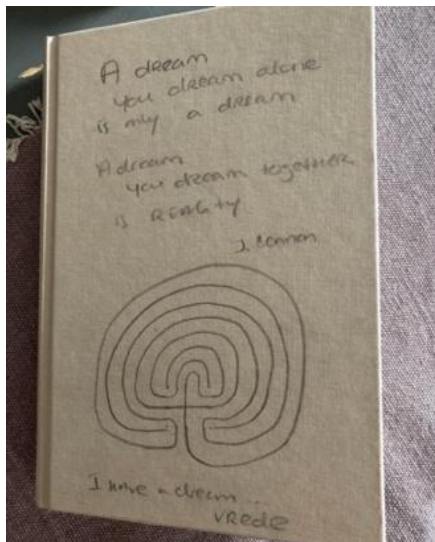 A dream
you dream alone
is only a dream
A dream
you dream together
is REALity
J. Lennon
I have a dream...
VRede